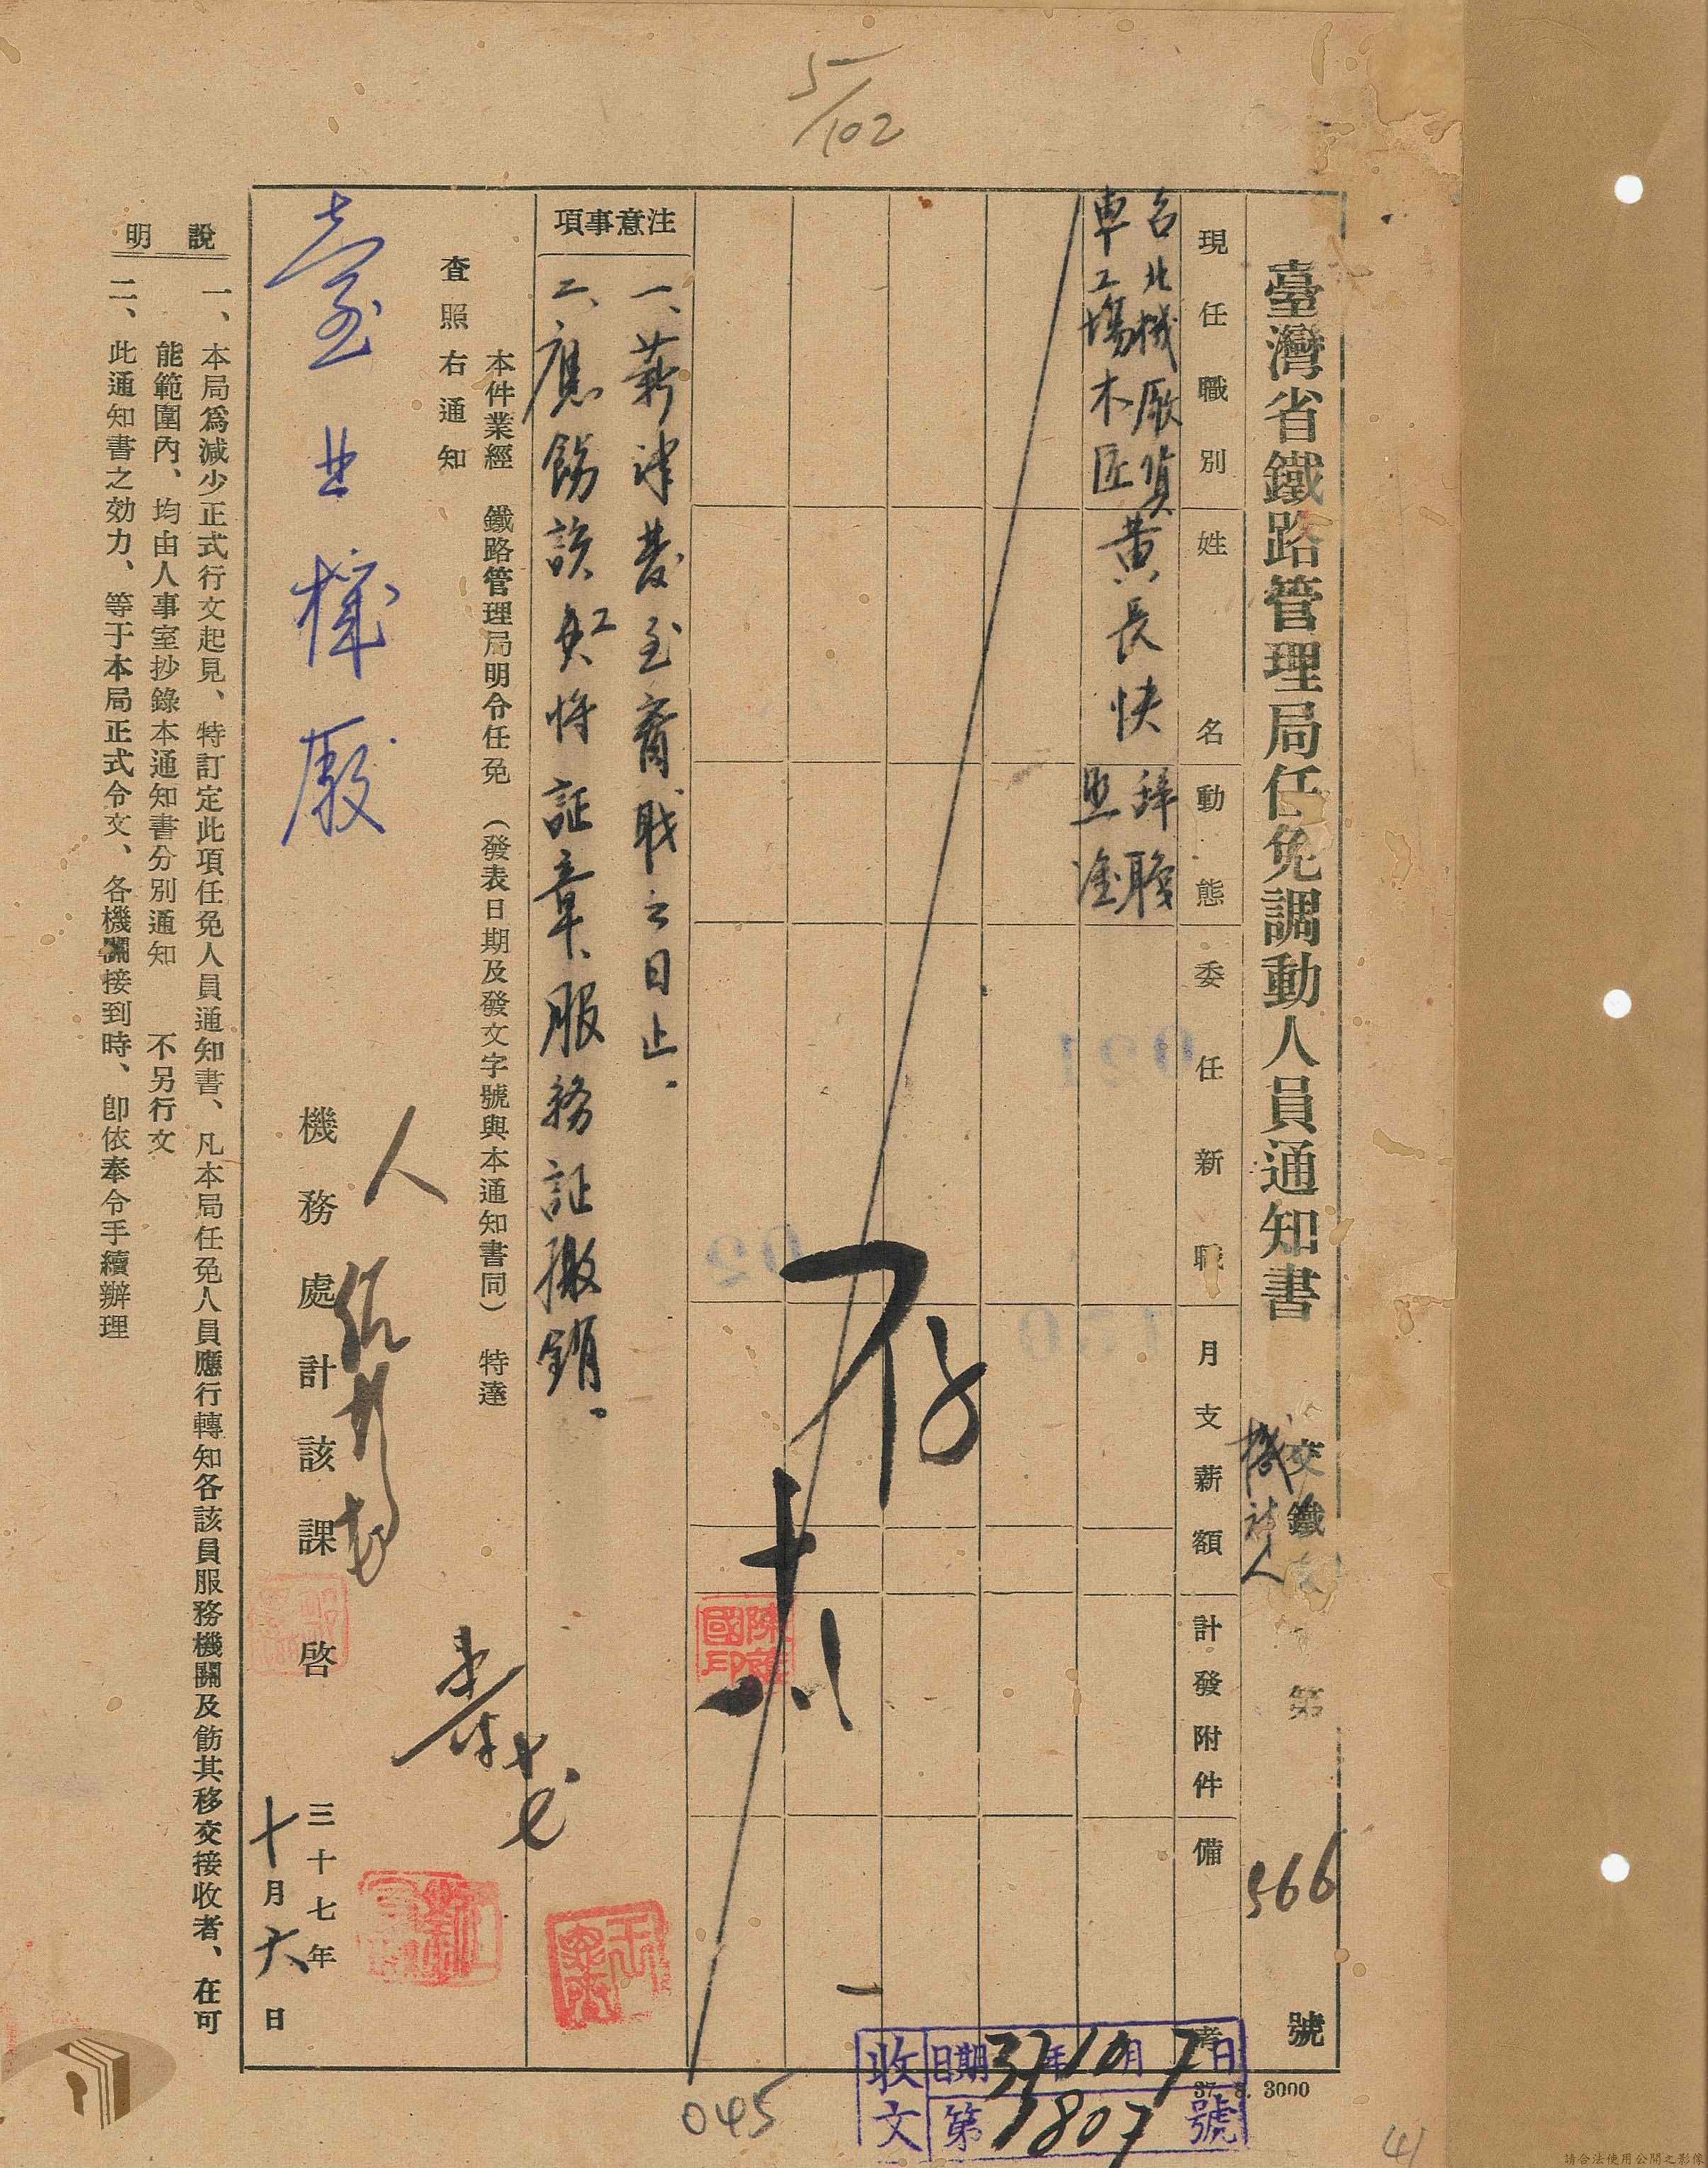 5/102
臺灣省鐵路管理局任免調動人員通知書
交鐵
機
人
第566號
現任職別
姓名
動態
委任新職
月支薪額
計發附件
備考
台北機廠貨
車工場木匠
黃長快
辭職
照准
注意事項
一、薪津發至離職之日止。
二、應飭該員將証章、服務証撤銷。
存
陳
國印
本件業經 鐵路管理局明令任免 (發表日期及發文字號與本通知書同) 特達
查照右通知
臺北機廠
人
機務處計該課啓
三十七年
十月六日
說明
一、本局爲減少正式行文起見、特訂定此項任免人員通知書、凡本局任免人員應行轉知各該員服務機關及飭其移交接收者、在可
能範圍內、均由人事室抄錄本通知書分別通知 不另行文
二、此通知書之効力、等于本局正式令文、各機關接到時、卽依奉令手續辦理
收文
日期37年10月7日
第1807號
37. 8. 3000
045
41
請合法使用公開之影像